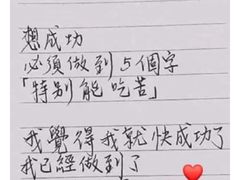 想成功
必須做到5個字
「特別能吃苦」
我覺得我就快成功了
我已經做到了